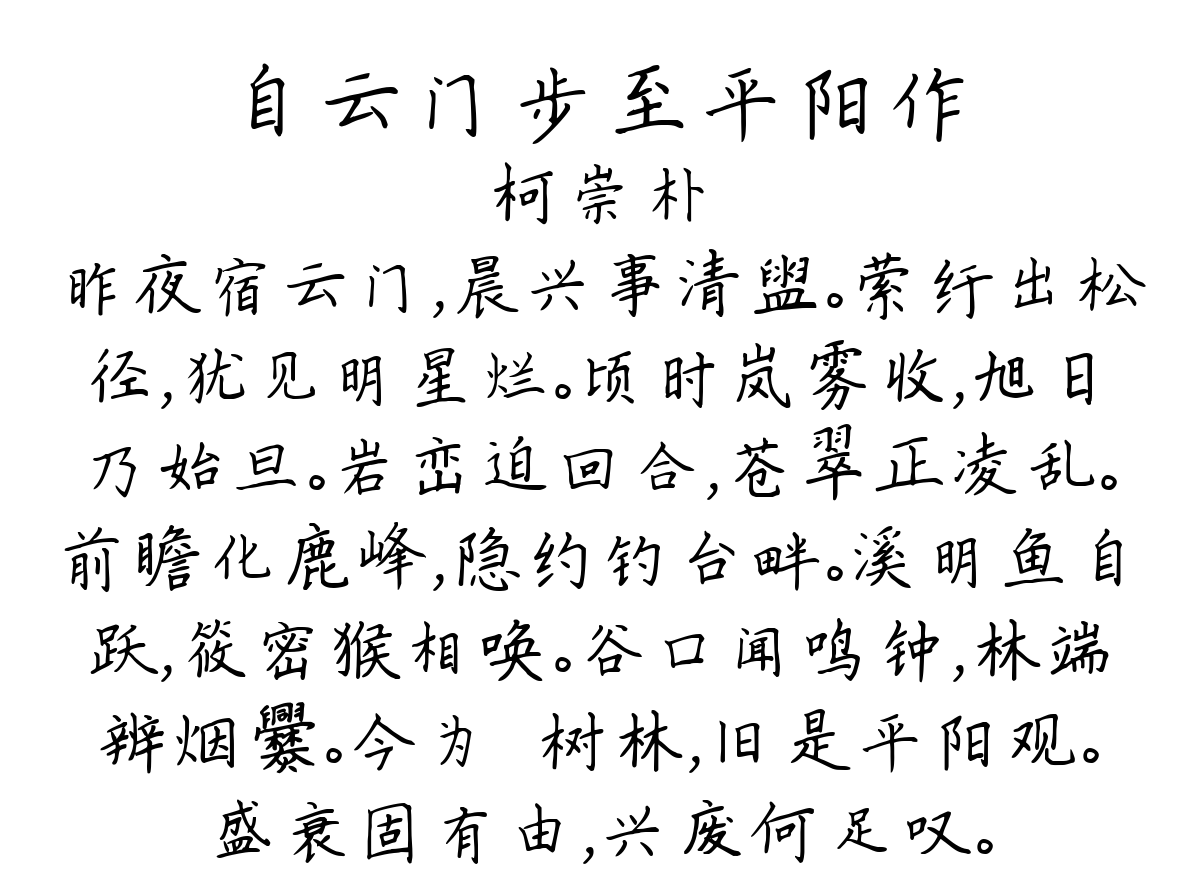 自云门步至平阳作
柯崇朴
昨夜宿云门,晨兴事清盥。萦纡出松
径,犹见明星烂。顷时岚雾收,旭日
乃始旦。岩峦迫回合,苍翠正凌乱。
前瞻化鹿峰,隐约钓台畔。溪明鱼自
跃,筱密猴相唤。谷口闻鸣钟,林端
辨烟爨。今为 树林,旧是平阳观。
盛衰固有由,兴废何足叹。